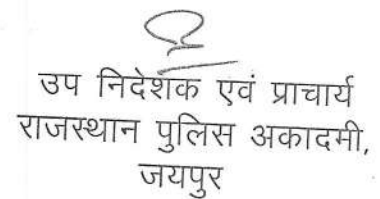 उप निदेशक एवं प्राचार्य
राजस्थान पुलिस अकादमी,
जयपुर